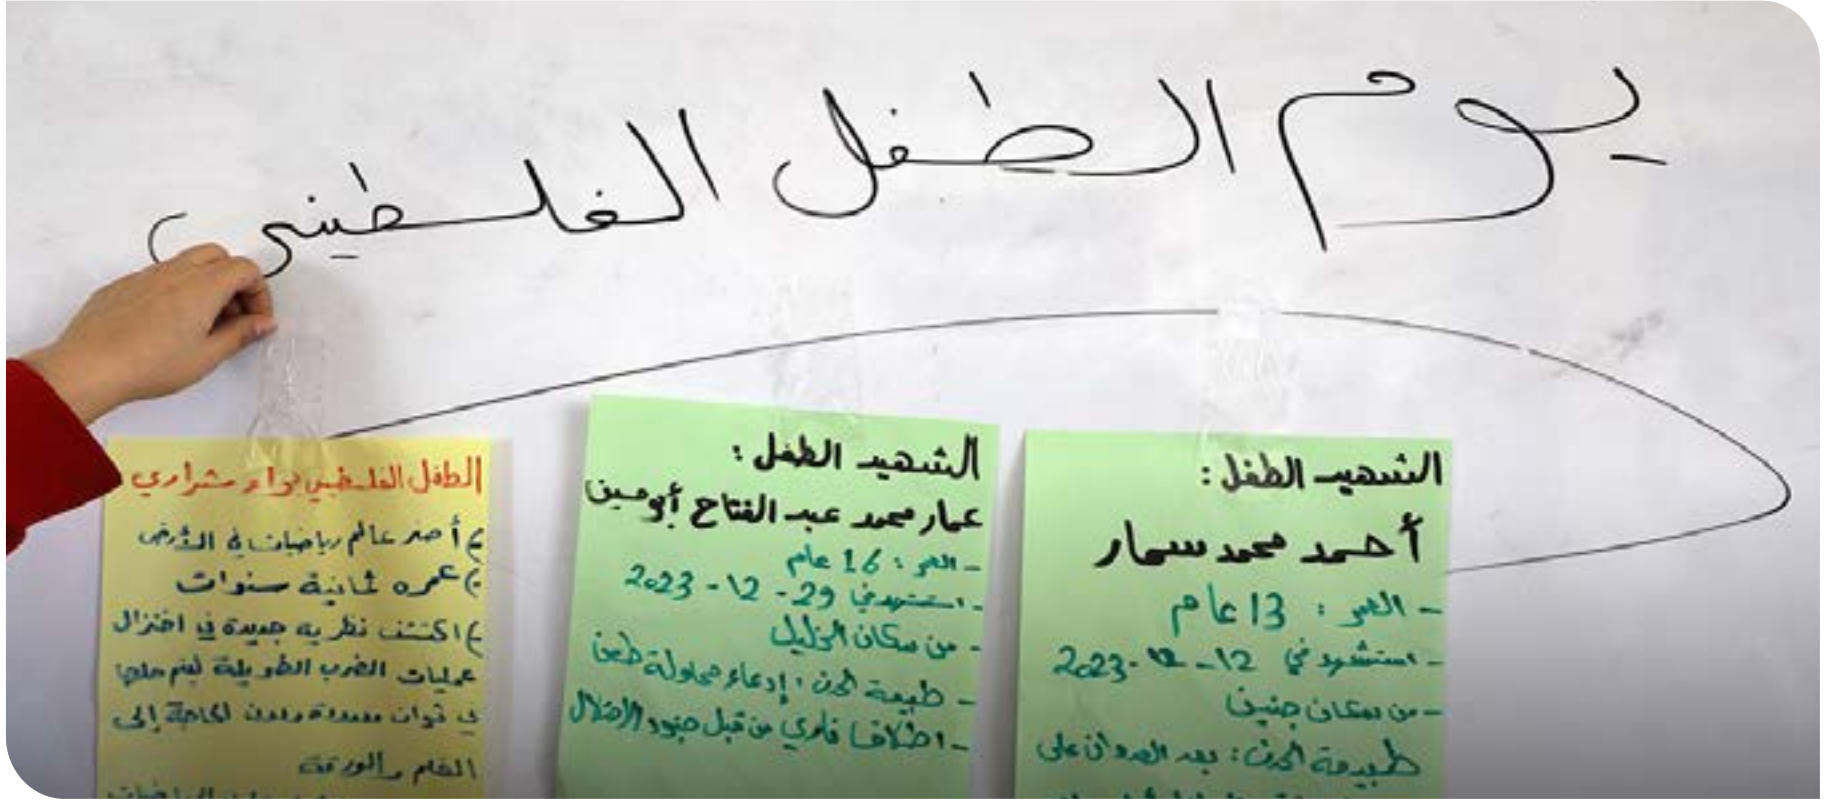 يوم الطفل الفلسطيني
الشهيد الطفل:
أحمد محمد سمار
- العمر: 13 عام
- استشهد في 12-12-2023
- من سكان جنين
طبيعة الحدث: بعد العدوان على
الشهيد الطفل:
عمار محمد عبد الفتاح أبو حسين
- العمر: 16 عام
- استشهد في 29-12-2023
- من سكان الخليل
- طبيعة الحدث: إدعاء محاولة طعن
- اطلاق ناري من قبل جنود الاحتلال
الطفل الفلسطيني براء مشراوي
) أصغر عالم رياضيات في الأرض
) عمره ثمانية سنوات
) اكتشف نظرية جديدة في اختزال
عمليات الضرب الطويلة ليتم حلها
في ثوان معدودة بدون الحاجة إلى
القلم والورقة